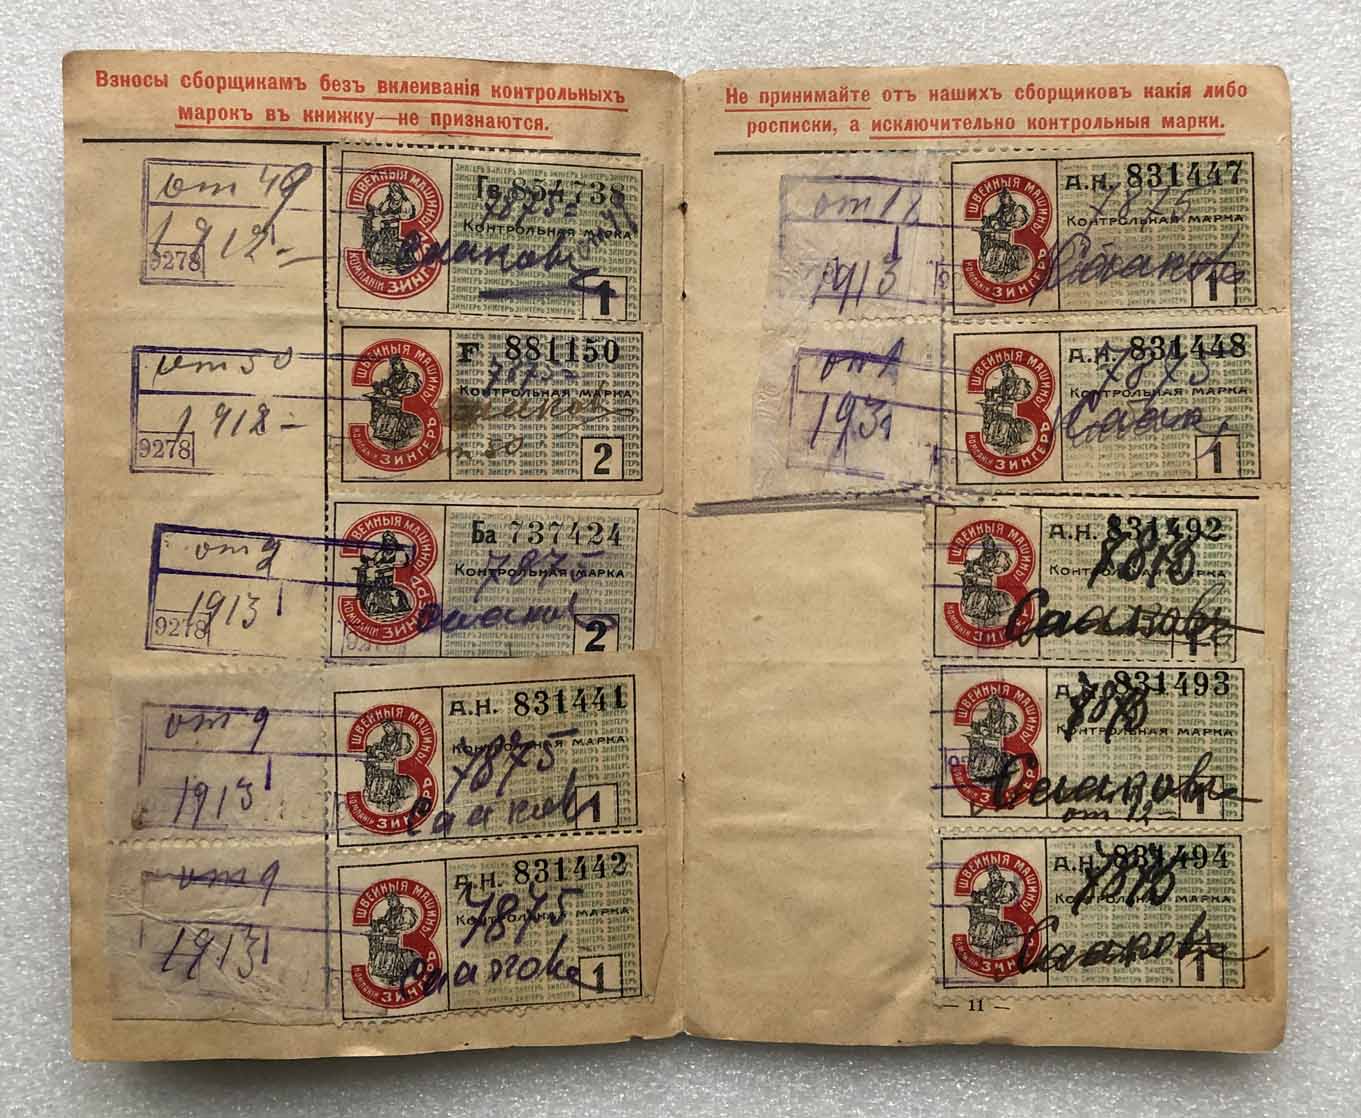 Взносы сборщикамъ безъ вклеиванія контрольныхъ
марокъ въ книжку—не признаются.
от 49
1912
9278
ШВЕЙНЫЯ МАШИНЫ
КОМПАНІИ ЗИНГЕРЪ
Гв 854738
7875
Контрольная марка
1
от 50
1912
9278
ШВЕЙНЫЯ МАШИНЫ
КОМПАНІИ ЗИНГЕРЪ
F 881150
7875
Контрольная марка
от 50
2
от 9
1913
9278
ШВЕЙНЫЯ МАШИНЫ
КОМПАНІИ ЗИНГЕРЪ
Ба 737424
7875
Контрольная марка
2
от 9
1913
ШВЕЙНЫЯ МАШИНЫ
КОМПАНІИ ЗИНГЕРЪ
А.Н. 831441
Контрольная марка
7875
1
от 9
1913
ШВЕЙНЫЯ МАШИНЫ
КОМПАНІИ ЗИНГЕРЪ
А.Н. 831442
Контрольная марка
7875
1
Не принимайте отъ нашихъ сборщиковъ какія либо
росписки, а исключительно контрольныя марки.
1913
ШВЕЙНЫЯ МАШИНЫ
КОМПАНІИ ЗИНГЕРЪ
А.Н. 831447
7875
Контрольная марка
1
ШВЕЙНЫЯ МАШИНЫ
КОМПАНІИ ЗИНГЕРЪ
А.Н. 831448
7875
Контрольная марка
1
ШВЕЙНЫЯ МАШИНЫ
КОМПАНІИ ЗИНГЕРЪ
А.Н. 831492
Контрольная марка
1
ШВЕЙНЫЯ МАШИНЫ
КОМПАНІИ ЗИНГЕРЪ
А.Н. 831493
Контрольная марка
1
ШВЕЙНЫЯ МАШИНЫ
КОМПАНІИ ЗИНГЕРЪ
А.Н. 831494
Контрольная марка
1
— 11 —